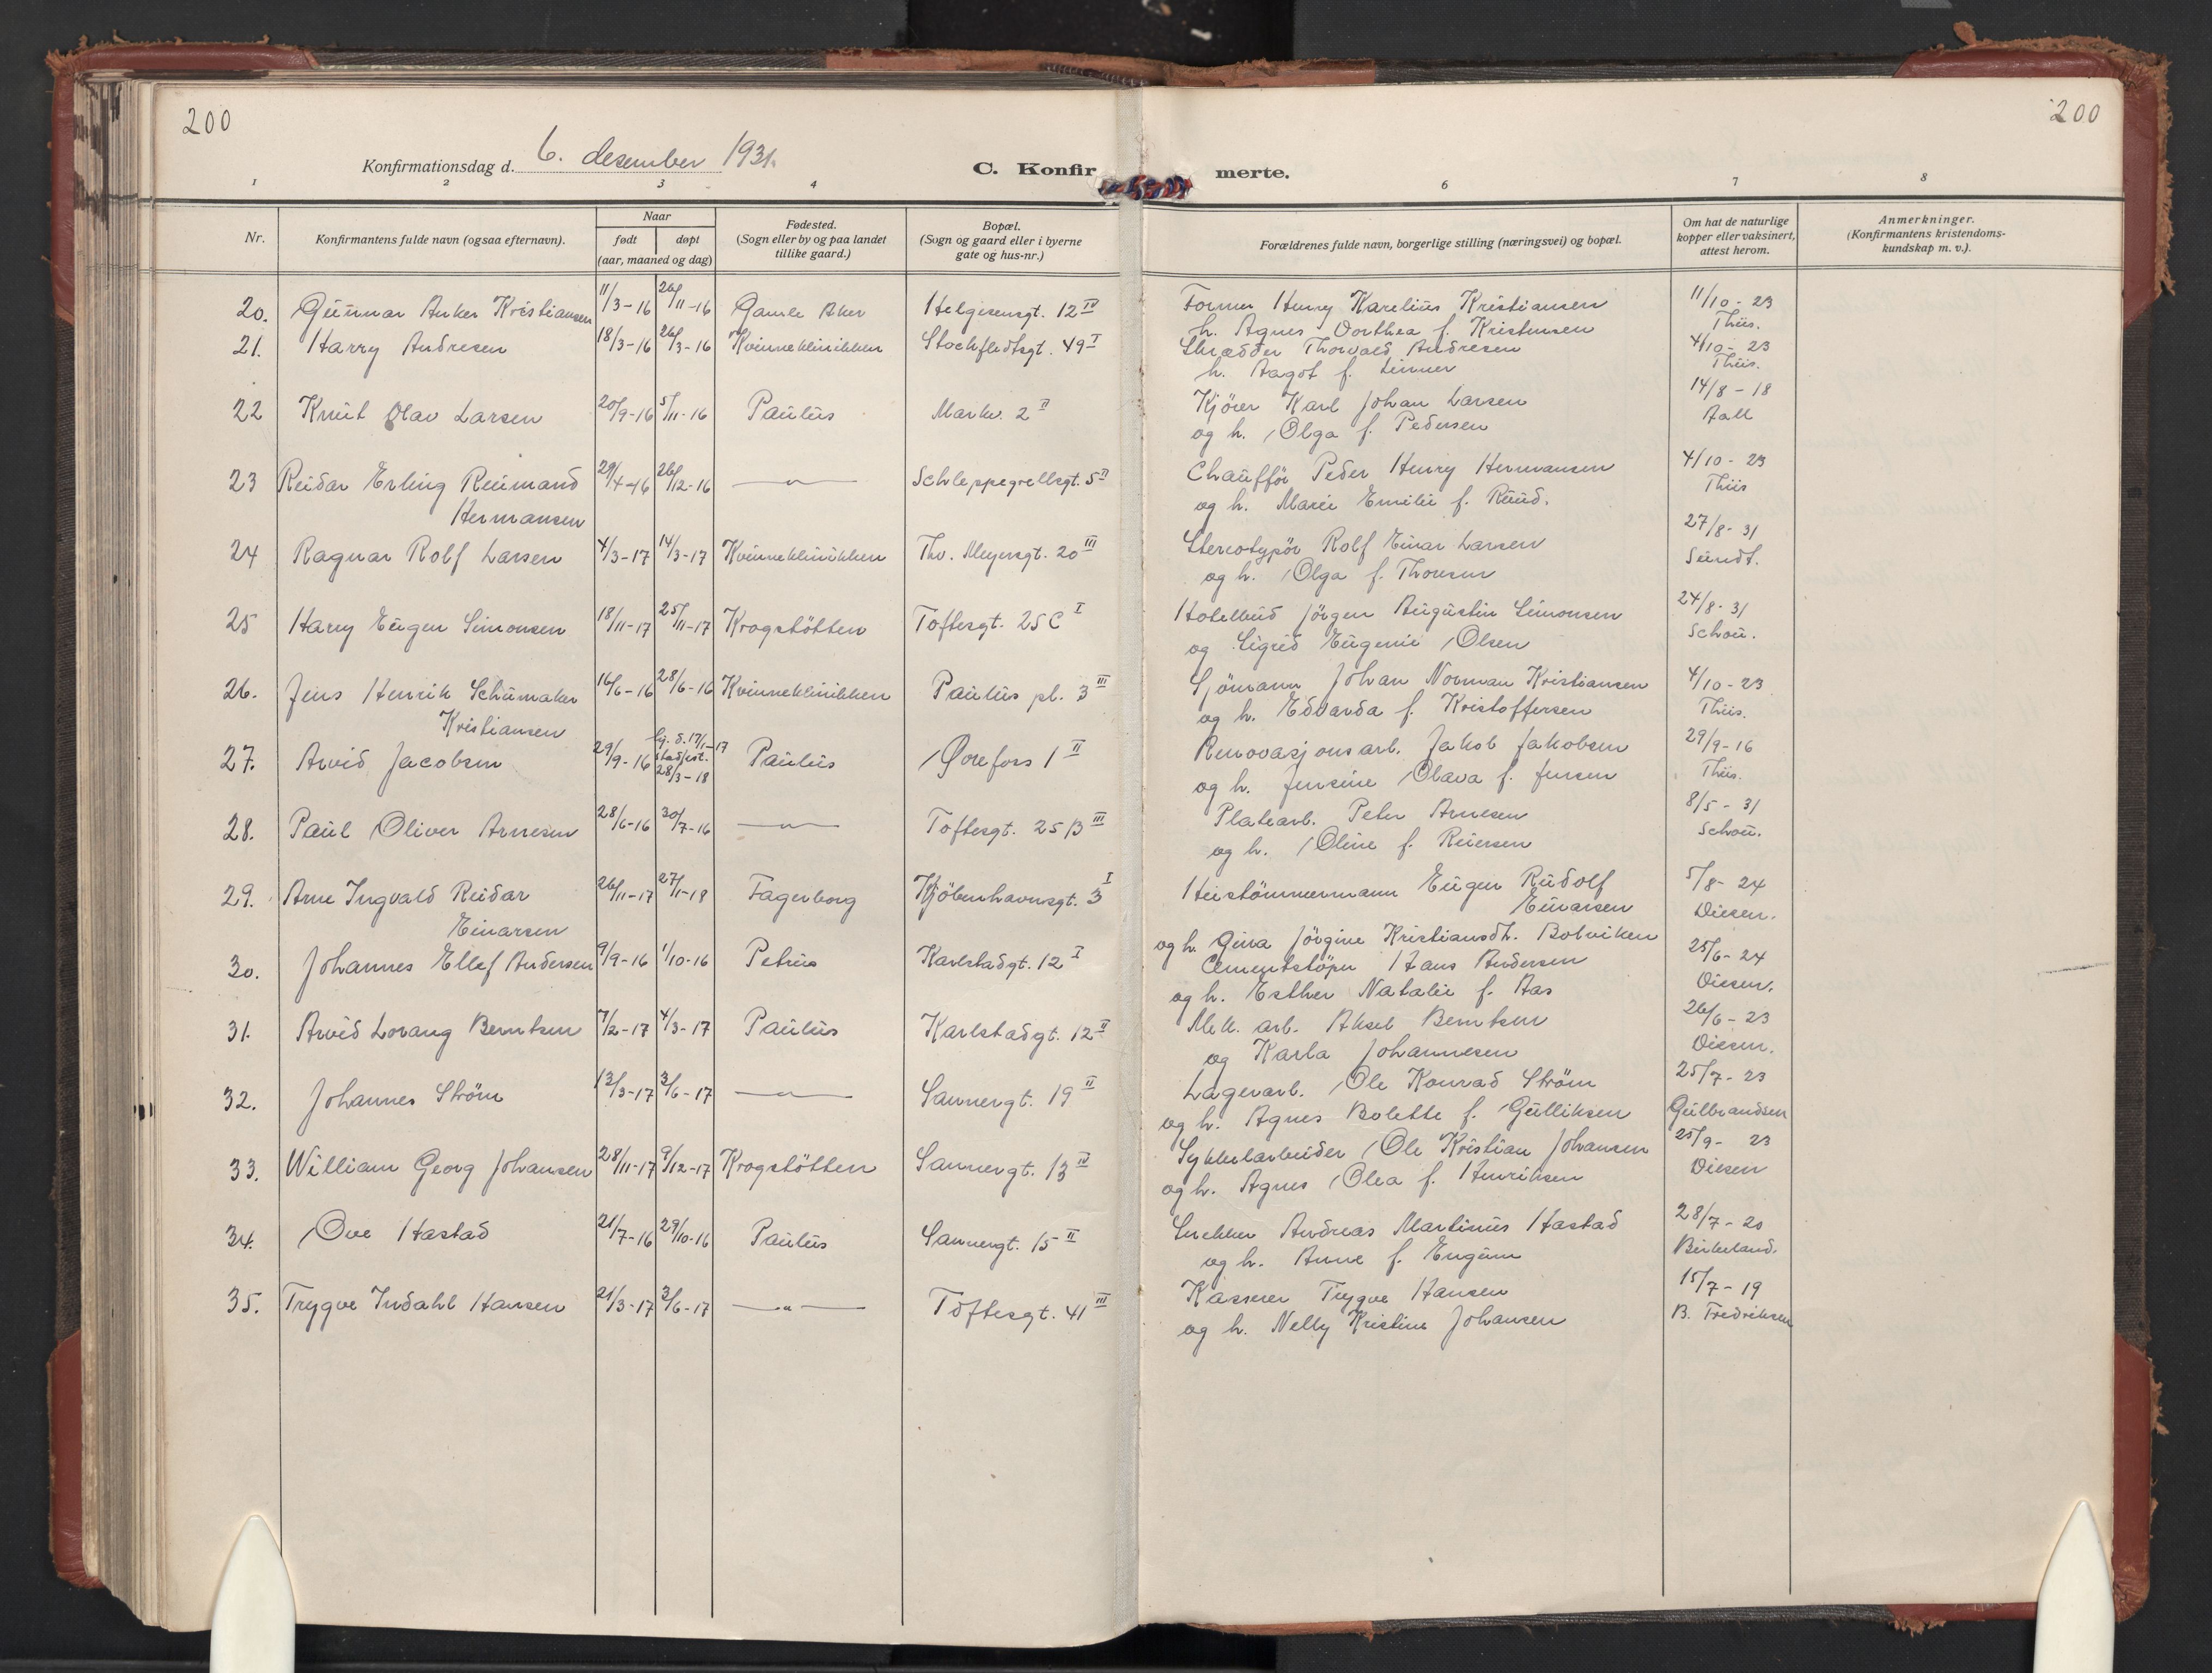 200
200
Konfirmationsdag d. 6. desember 1931.
C. Konfir merte.
1 2 3 4 6 7 8
Nr.
Konfirmantens fulde navn (ogsaa efternavn).
Naar
født døpt
(aar, maaned og dag)
Fødested.
(Sogn eller by og paa landet
tillike gaard.)
Bopæl.
(Sogn og gaard eller i byerne
gate og hus-nr.)
Forældrenes fulde navn, borgerlige stilling (næringsvei) og bopæl.
Om hat de naturlige
kopper eller vaksinert,
attest herom.
Anmerkninger.
(Konfirmantens kristendoms-
kundskap m. v.).
20. Gunnar Anker Kristiansen 11/3-16 26/11-16 Gamle Aker Helgesensgt. 12 IV Former Henry Karelius Kristiansen 11/10-23
h. Agnes Dorthea f. Kristensen Thiis.
21. Harry Andresen 18/3-16 26/3-16 Kvinneklinikken Stockfledtsgt. 49 I Skrædder Thorvald Andresen 4/10-23
h. Aagot f. Linner Thiis.
22 Knut Olav Larsen 20/9-16 5/11-16 Paulus Markv. 2 II Kjörer Karl Johan Larsen 14/8-18
og h. Olga f. Pedersen Aall
23 Reidar Erling Reimand 29/4-16 26/12-16 —"— Schleppegrellsgt. 5 II Chaufför Peder Henry Hermansen 4/10-23
Hermansen og h. Marie Emilie f. Ruud. Thiis
24 Ragnar Rolf Larsen 4/3-17 14/3-17 Kvinneklinikken Thv. Meyersgt. 20 III Stereotypör Rolf Einar Larsen 27/8-31
og h. Olga f. Thoresen Sundt.
25 Harry Eugen Simonsen 18/11-17 25/11-17 Krogstötten Toftesgt. 25 C I Hotelbud Jörgen Augustin Simonsen 24/8-31
og Sigrid Eugenie Olsen Schou.
26. Jens Henrik Schumaker 16/6-16 28/6-16 Kvinneklinikken Paulus pl. 3 III Sjömann Johan Norman Kristiansen 4/10-23
Kristiansen og h. Edvarda f. Kristoffersen Thiis.
27. Arvid Jacobsen 29/9-16 hj. d. 17/1-17 stadfest. 28/3-18 Paulus Örefoss 1 II Renovasjonsarb. Jakob Jakobsen 29/9-16
og h. Jensine Olava f. Jensen Thiis.
28. Paul Oliver Arnesen 28/6-16 30/7-16 —"— Toftesgt. 25 B III Platearb. Peter Arnesen 8/5-31
og h. Oline f. Reiersen Schou.
29. Arne Ingvald Reidar 26/11-17 27/1-18 Fagerborg Kjöbenhavnsgt. 3 I Heistömmermann Eugen Rudolf 5/8-24
Einarsen Einarsen Diesen.
og h. Gina Jörgine Kristiansdt. Bolviken
30. Johannes Ellef Andersen 9/9-16 1/10-16 Petrus Karlstadgt. 12 I Cementstöper Hans Andersen 25/6-24
og h. Esther Natalie f. Aas Diesen.
31. Arvid Lorang Berntsen 7/2-17 4/3-17 Paulus Karlstadgt. 12 II Mek. arb. Aksel Berntsen 26/6-23
og Karla Johannesen Diesen.
32. Johannes Ström 13/3-17 3/6-17 —"— Sannergt. 19 II Lagerarb. Ole Konrad Ström 25/7-23
og h. Agnes Bolette f. Gulliksen Gulbrandsen
33. William Georg Johansen 28/11-17 9/12-17 Krogstötten Sannergt. 13 IV Sykkelarbeider Ole Kristian Johansen 25/9-23
og h. Agnes Olea f. Henriksen Diesen
34. Ove Hastad 21/7-16 29/10-16 Paulus Sannergt. 15 II Snekker Andreas Martinus Hastad 28/7-20
og h. Anne f. Engum Birkeland.
35. Trygve Indahl Hansen 21/3-17 3/6-17 —"— Toftesgt. 41 III Kasserer Trygve Hansen 15/7-19
og h. Nelly Kristine Johansen B. Fredriksen